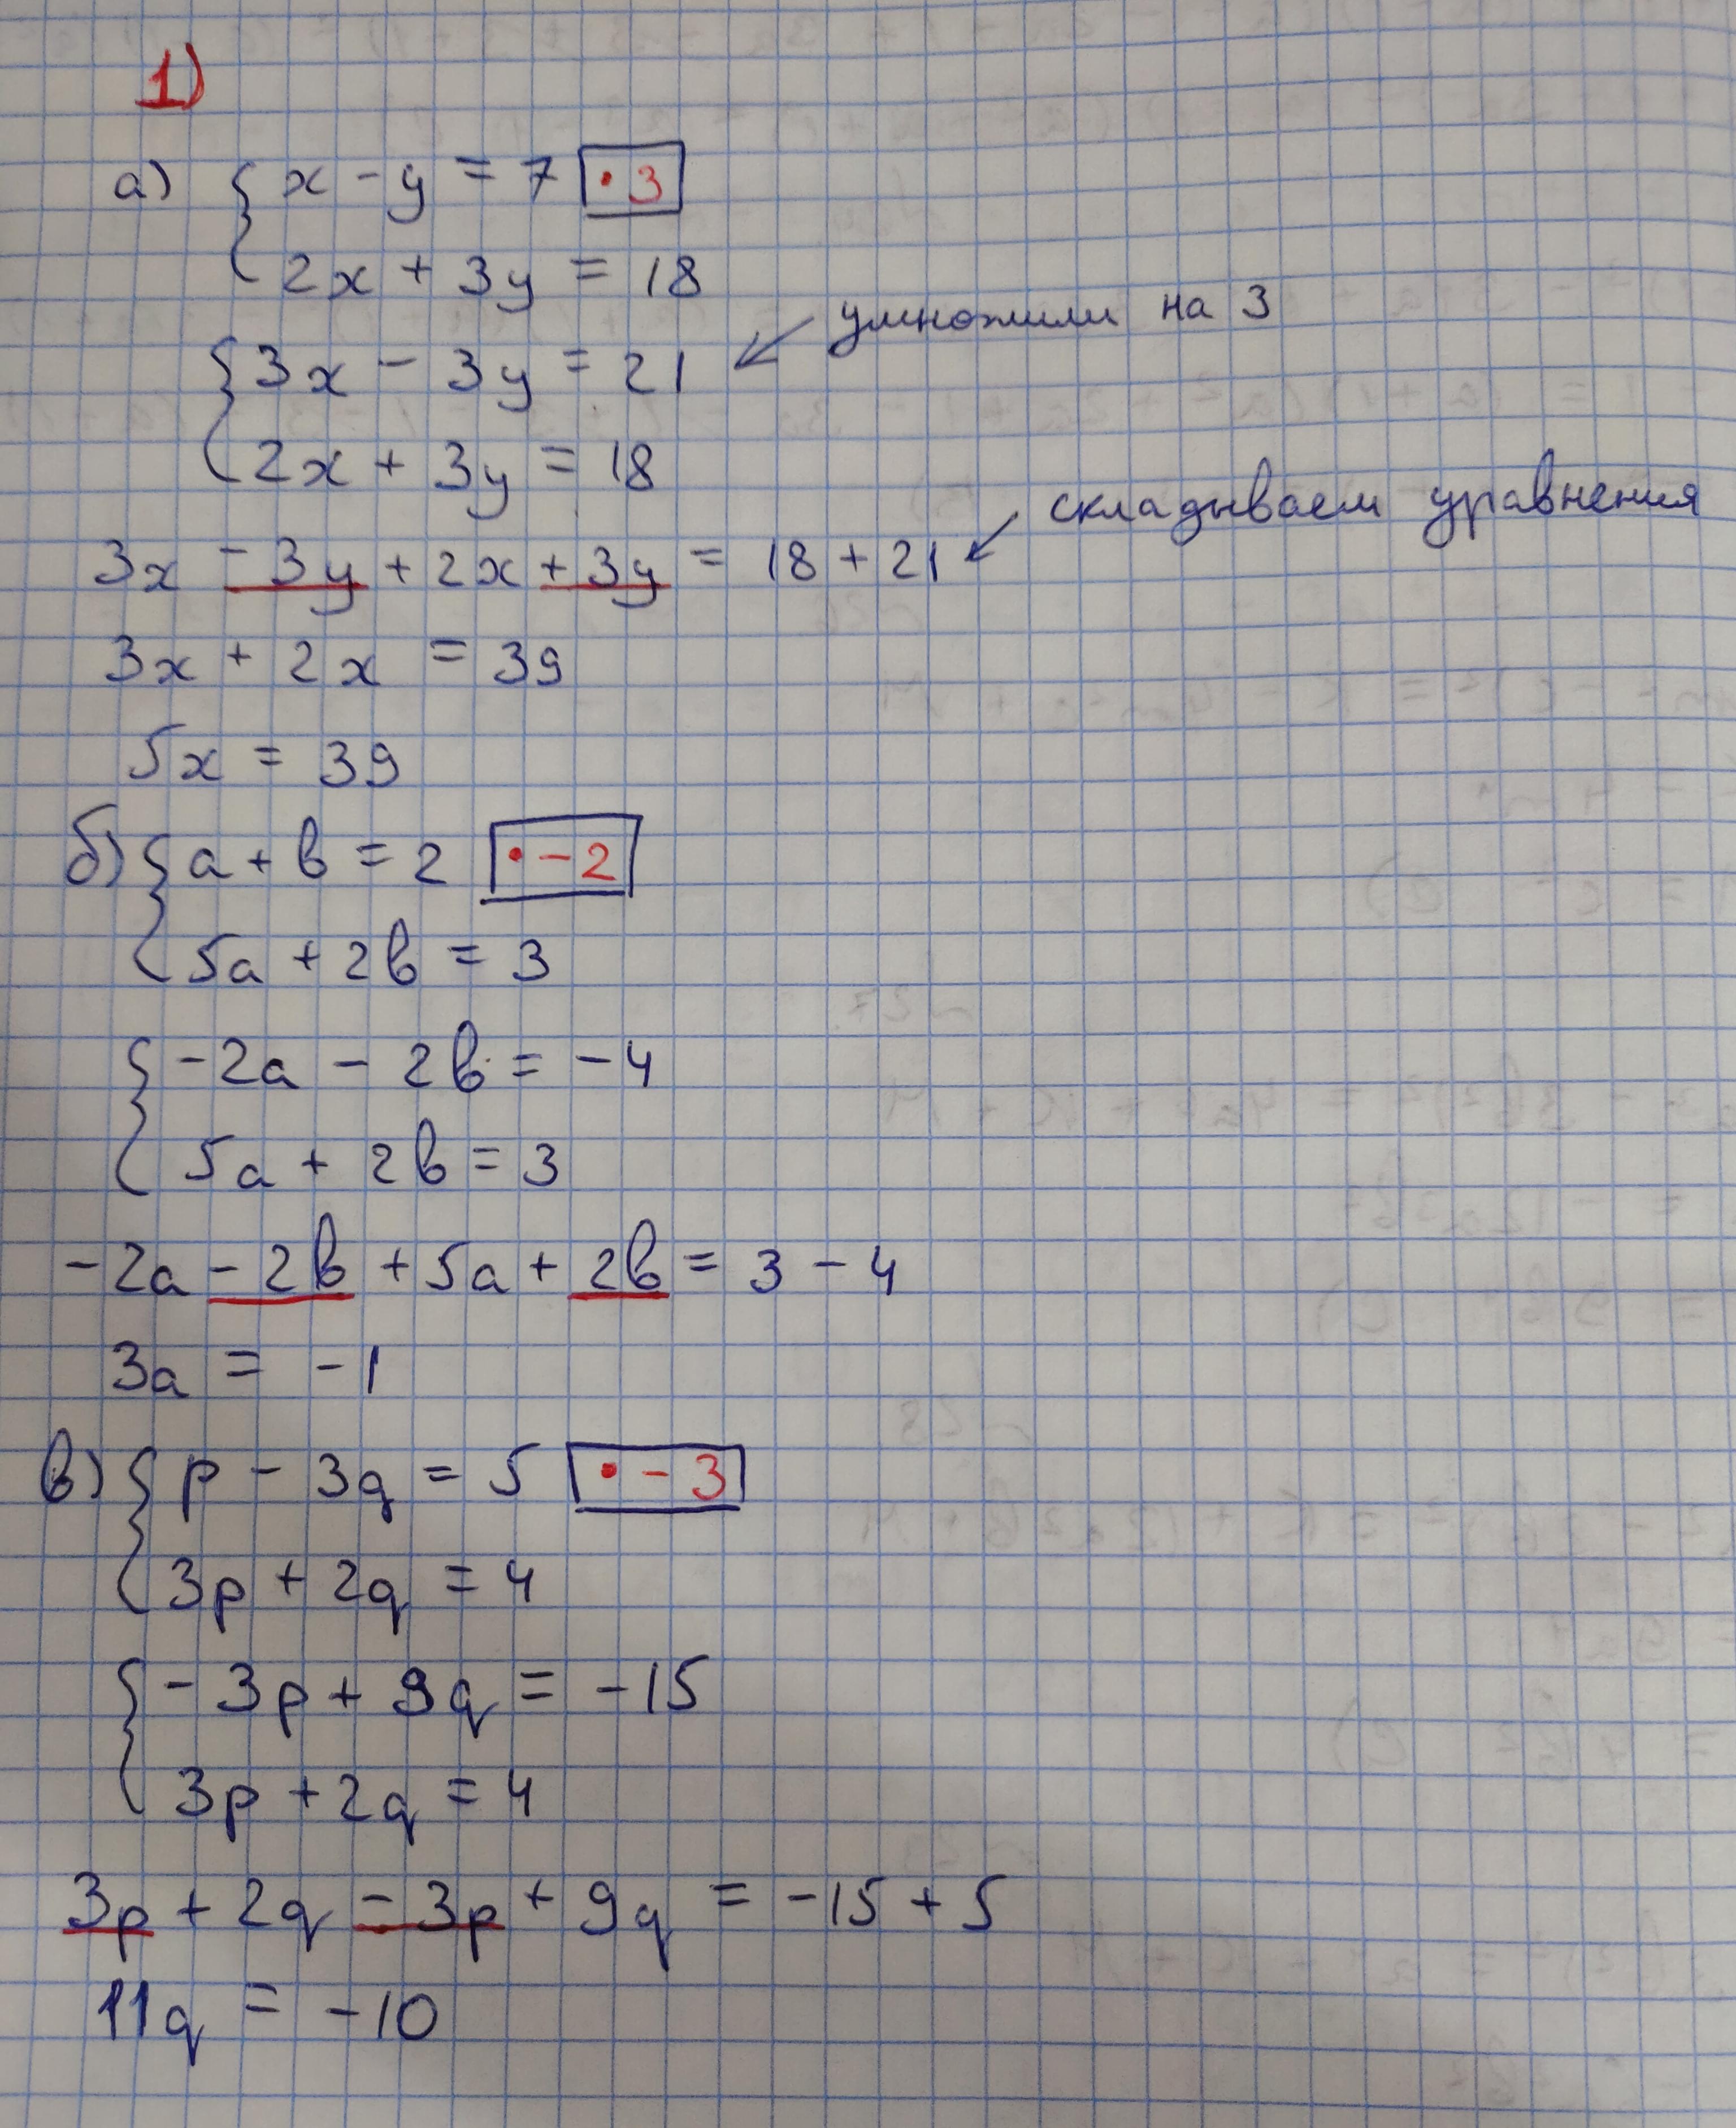 1)
а) { x - y = 7 · 3
2x + 3y = 18
умножили на 3
{ 3x - 3y = 21
2x + 3y = 18
складываем уравнения
3x - 3y + 2x + 3y = 18 + 21
3x + 2x = 39
5x = 39
б) { a + b = 2 · -2
5a + 2b = 3
{ -2a - 2b = -4
5a + 2b = 3
-2a - 2b + 5a + 2b = 3 - 4
3a = -1
в) { p - 3q = 5 · -3
3p + 2q = 4
{ -3p + 9q = -15
3p + 2q = 4
3p + 2q - 3p + 9q = -15 + 5
11q = -10